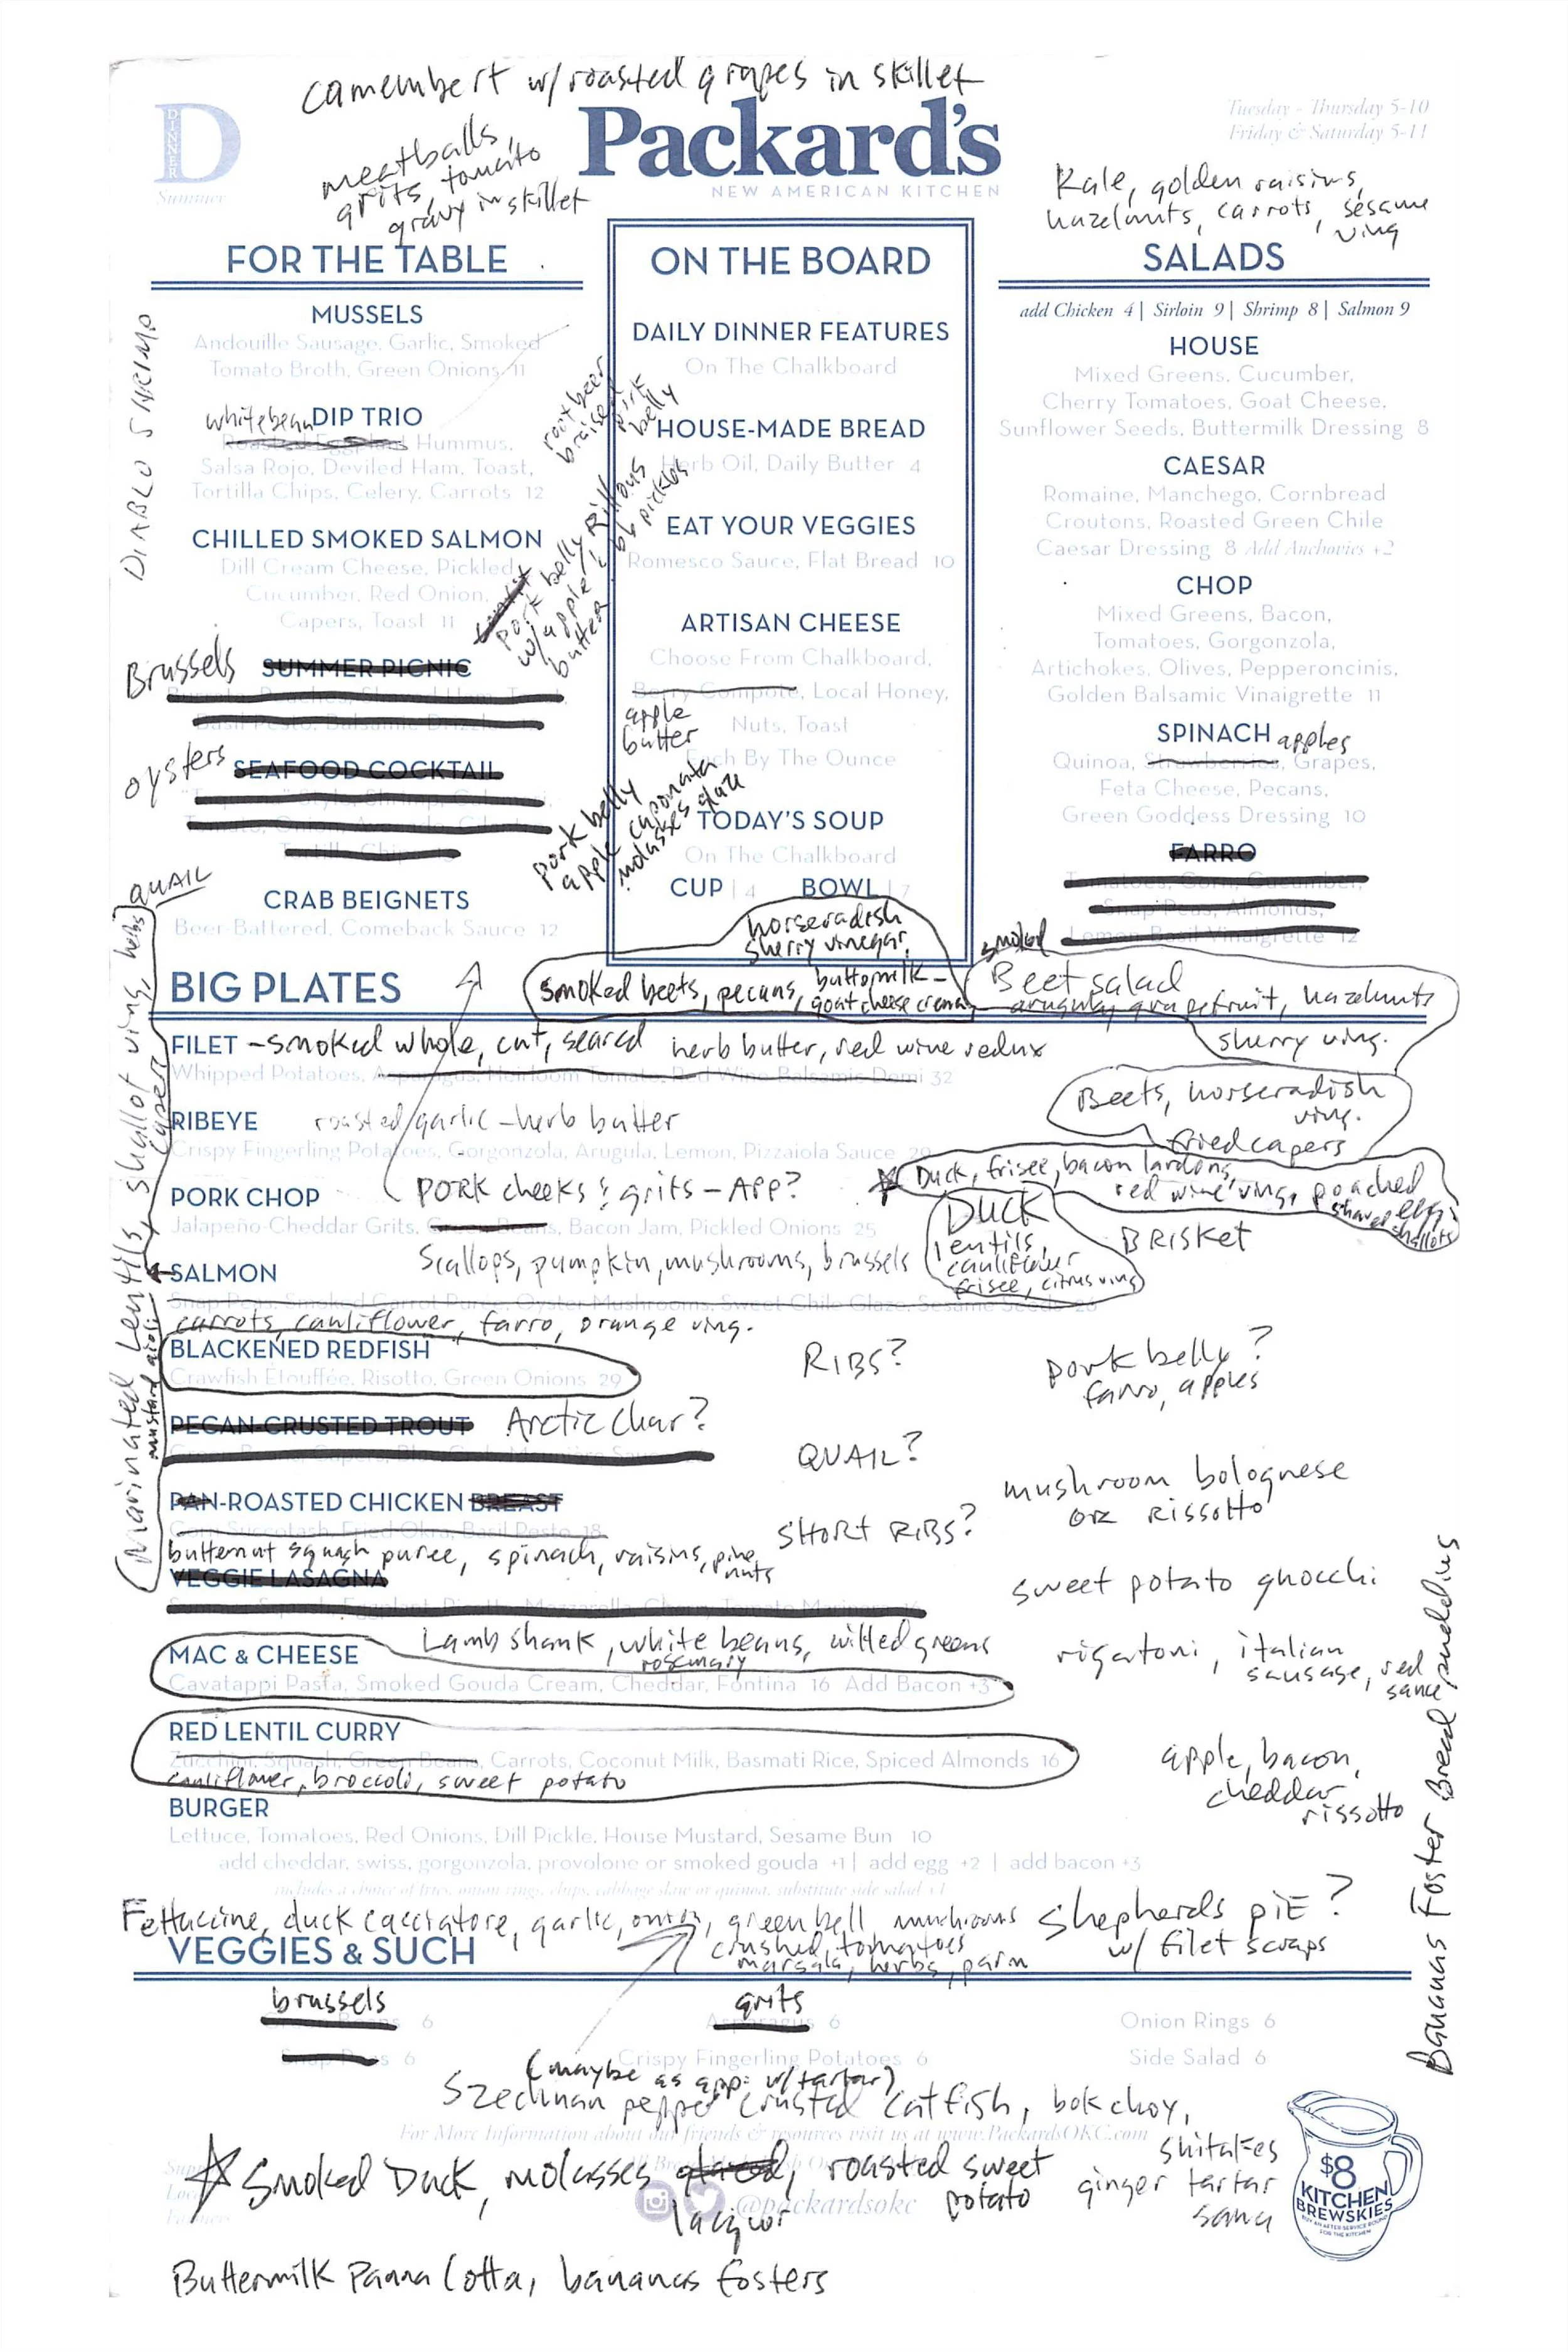 camembert w/roasted grapes in skillet
D
DINNER
Summer
meatballs,
grits, tomato
gravy in skillet
Packard's
NEW AMERICAN KITCHEN
Tuesday - Thursday 5-10
Friday & Saturday 5-11
Kale, golden raisins,
hazelnuts, carrots, sesame
ving
FOR THE TABLE
DIABLO SHRIMP
MUSSELS
Andouille Sausage, Garlic, Smoked
Tomato Broth, Green Onions 11
whitebean DIP TRIO
Roasted Eggplant Hummus,
Salsa Rojo, Deviled Ham, Toast,
Tortilla Chips, Celery, Carrots 12
CHILLED SMOKED SALMON
Dill Cream Cheese, Pickled
Cucumber, Red Onion,
Capers, Toast 11
Brussels SUMMER PICNIC
oysters SEAFOOD COCKTAIL
QUAIL
CRAB BEIGNETS
Beer-Battered, Comeback Sauce 12
rootbeer
braised pork
belly
pork belly Rillons
w/apple / bb pickles
butter
pork belly
apple caponata
molasses glaze
ON THE BOARD
DAILY DINNER FEATURES
On The Chalkboard
HOUSE-MADE BREAD
Herb Oil, Daily Butter 4
EAT YOUR VEGGIES
Romesco Sauce, Flat Bread 10
ARTISAN CHEESE
Choose From Chalkboard,
Berry Compote, Local Honey,
apple
butter
Nuts, Toast
Each By The Ounce
TODAY'S SOUP
On The Chalkboard
CUP | 4 BOWL | 7
SALADS
add Chicken 4 | Sirloin 9 | Shrimp 8 | Salmon 9
HOUSE
Mixed Greens, Cucumber,
Cherry Tomatoes, Goat Cheese,
Sunflower Seeds, Buttermilk Dressing 8
CAESAR
Romaine, Manchego, Cornbread
Croutons, Roasted Green Chile
Caesar Dressing 8 Add Anchovies +2
CHOP
Mixed Greens, Bacon,
Tomatoes, Gorgonzola,
Artichokes, Olives, Pepperoncinis,
Golden Balsamic Vinaigrette 11
SPINACH apples
Quinoa, Strawberries, Grapes,
Feta Cheese, Pecans,
Green Goddess Dressing 10
FARRO
Tomatoes, Corn, Cucumber,
Snap Peas, Almonds,
Lemon Basil Vinaigrette 12
horseradish
sherry vinegar,
smoked beets, pecans, buttermilk-
goat cheese crema
smoked
Beet salad
arugula, grapefruit, hazelnuts
sherry ving.
Beets, horseradish
ving.
fried capers
BIG PLATES
Marinated Lentils, shallot ving, herbs
capers
mustard aioli
FILET - smoked whole, cut, seared herb butter, red wine redux
Whipped Potatoes, Asparagus, Heirloom Tomato, Red Wine Balsamic Demi 32
RIBEYE roasted/garlic-herb butter
Crispy Fingerling Potatoes, Gorgonzola, Arugula, Lemon, Pizzaiola Sauce 29
Duck, frisee, bacon lardons,
red wine ving, poached
egg
shaved shallots
PORK CHOP PORK cheeks & grits - APP?
Jalapeño-Cheddar Grits, Green Beans, Bacon Jam, Pickled Onions 25
Duck
lentils,
cauliflower
frisee, citrus ving
BRISKET
Scallops, pumpkin, mushrooms, brussels
SALMON
Snap Peas, Smoked Carrot Puree, Oyster Mushrooms, Sweet Chile Glaze, Sesame Seeds 26
carrots, cauliflower, farro, orange ving.
BLACKENED REDFISH
Crawfish Étouffée, Risotto, Green Onions 29
RIBS?
pork belly?
farro, apples
PECAN-CRUSTED TROUT Arctic Char?
QUAIL?
mushroom bolognese
or rissotto
PAN-ROASTED CHICKEN BREAST
Corn Succotash, Fried Okra, Basil Pesto 18
butternut squash puree, spinach, raisins, pine
nuts
SHORT RIBS?
VEGGIE LASAGNA
sweet potato gnocchi
Lamb shank, white beans, wilted greens
rosemary
MAC & CHEESE
Cavatappi Pasta, Smoked Gouda Cream, Cheddar, Fontina 16 Add Bacon +3
rigatoni, italian
sausage, red
sauce
RED LENTIL CURRY
Zucchini, Squash, Green Beans, Carrots, Coconut Milk, Basmati Rice, Spiced Almonds 16
cauliflower, broccoli, sweet potato
apple, bacon,
cheddar
rissotto
BURGER
Lettuce, Tomatoes, Red Onions, Dill Pickle, House Mustard, Sesame Bun 10
add cheddar, swiss, gorgonzola, provolone or smoked gouda +1 | add egg +2 | add bacon +3
includes a choice of fries, onion rings, chips, cabbage slaw or quinoa, substitute side salad +1
Bananas Foster Bread pudding
Fettuccine, duck cacciatore, garlic, onion, green bell mushrooms
crushed tomatoes
marsala, herbs, parm
shepherds piE?
w/ filet scraps
VEGGIES & SUCH
brussels
6
Snap Peas 6
grits
Asparagus 6
Crispy Fingerling Potatoes 6
Onion Rings 6
Side Salad 6
(maybe as app. w/tartar)
Szechuan pepper crusted catfish, bok choy,
shitakes
ginger tartar
sauce
For More Information about our friends & resources visit us at www.PackardsOKC.com
Smoked Duck, molasses glazed, roasted sweet
potato
lacquor
@packardsokc
$8
KITCHEN
BREWSKIES
BUY AN AFTER SERVICE ROUND
FOR THE KITCHEN
Buttermilk Panna Cotta, bananas fosters